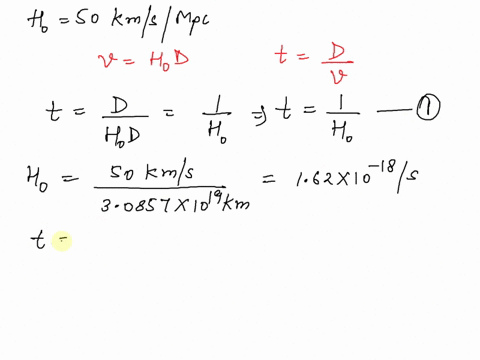 H₀ = 50 km/s/Mpc
v = H₀D t = D/v
t = D/H₀D = 1/H₀ ⇒ t = 1/H₀ —— ①
H₀ = 50 km/s / 3.0857×10¹⁹km = 1.62×10⁻¹⁸/s
t =